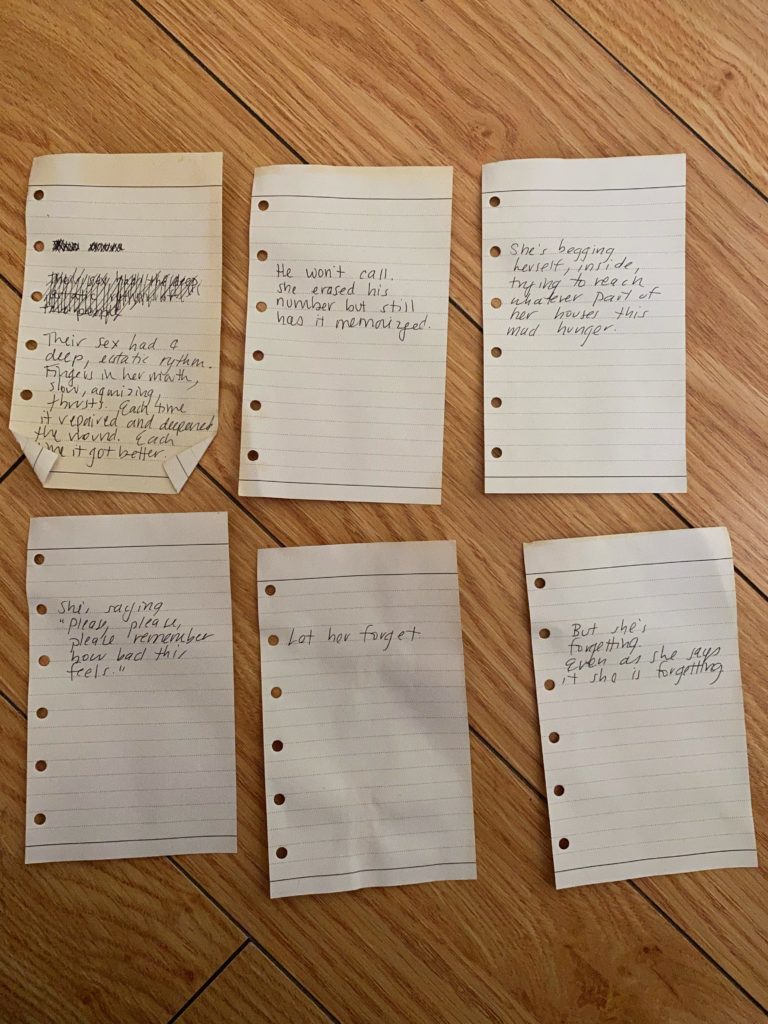 Their sex had a
deep, ecstatic rythm.
Fingers in her mouth,
slow, agonizing,
thrusts. Each time
it repaired and deepened
the wound. Each
time it got better.
He won't call.
she erased his
number but still
has it memorized.
She's begging
herself, inside,
trying to reach
whatever part of
her houses this
mad hunger.
She's saying
"Please, please,
please remember
how bad this
feels."
Let her forget.
But she's
forgetting.
Even as she says
it she is forgetting